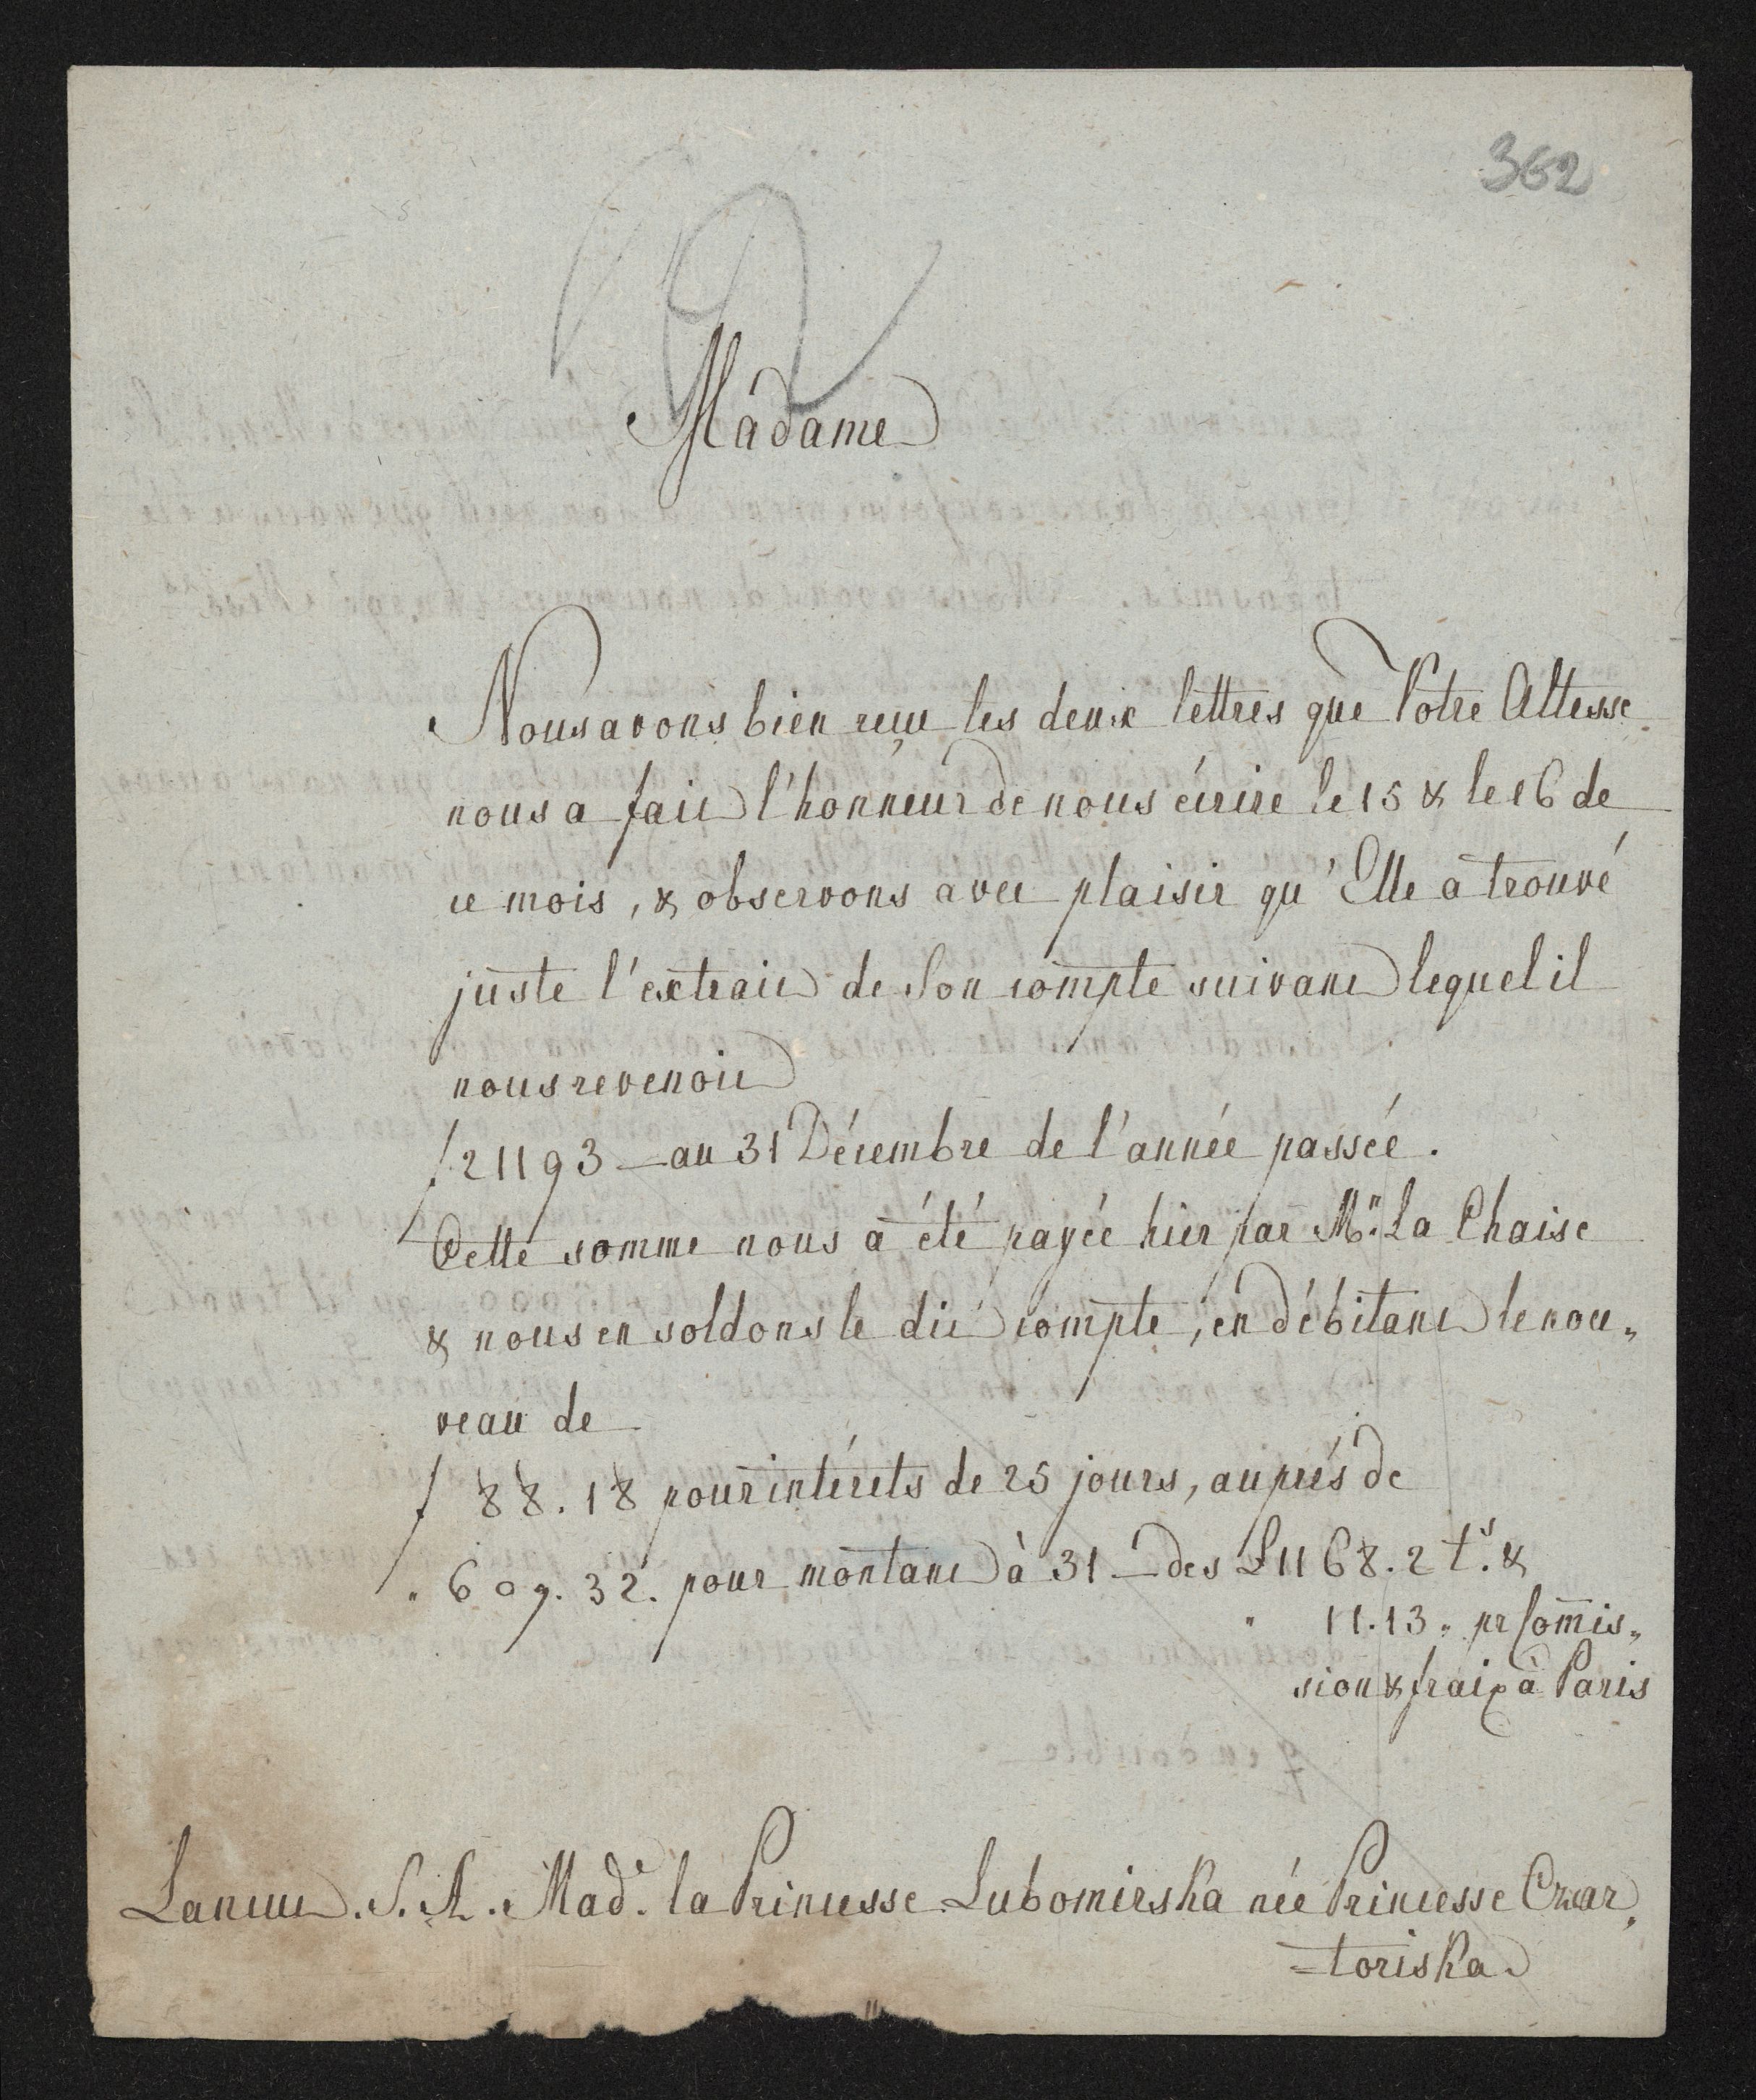 362
Madame
Nous avons bien reçu les deux lettres que Votre Altesse
nous a fait l'honneur de nous écrire le 15 & le 16 de
ce mois, & observons avec plaisir qu'Elle a trouvé
juste l'extrait de Son compte suivant lequel il
nous revenoit
f 21193 — au 31 Décembre de l'année passée.
Cette somme nous a été payée hier par Mr. La Chaise
& nous en soldons le dit compte, en débitant le nou„
veau de
f 88.18 pour intérets de 25 jours, auprés de
„ 609.32. pour montant à 31 — des L 1168.2 ts. &
„ 11.13 „ pr Commis„
sion & fraix à Paris
Lancut. S. A. Made. la Princesse Lubomirska née Princesse Czar„
toriska